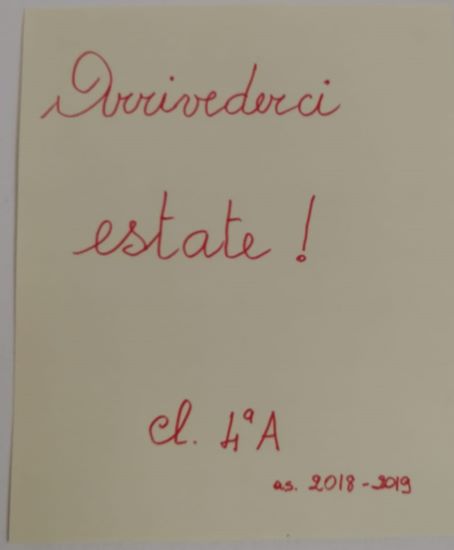 Arrivederci
estate !
cl. 4ª A
as. 2018-2019